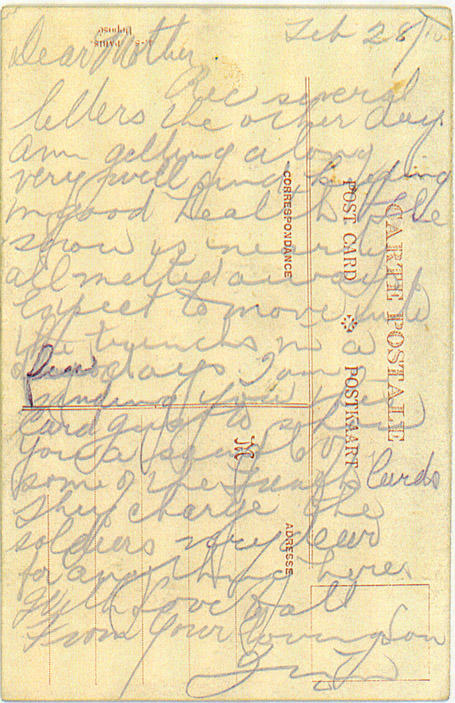 Feb 28
Dear Mother
Rec several
letters the other day.
am getting along
very well and keeping
in good health. The
snow is nearly
all melted away. I
expect to move into
the trenches in a
few days I am
sending you this
Card just to show
you a sample of
some of the cards
They charge the
soldiers very dear
for anything here
With love to all
From Your loving Son
CARTE POSTALE
POST CARD POSTKAART
CORRESPONDANCE
ADRESSE
M
PARIS
Déposé